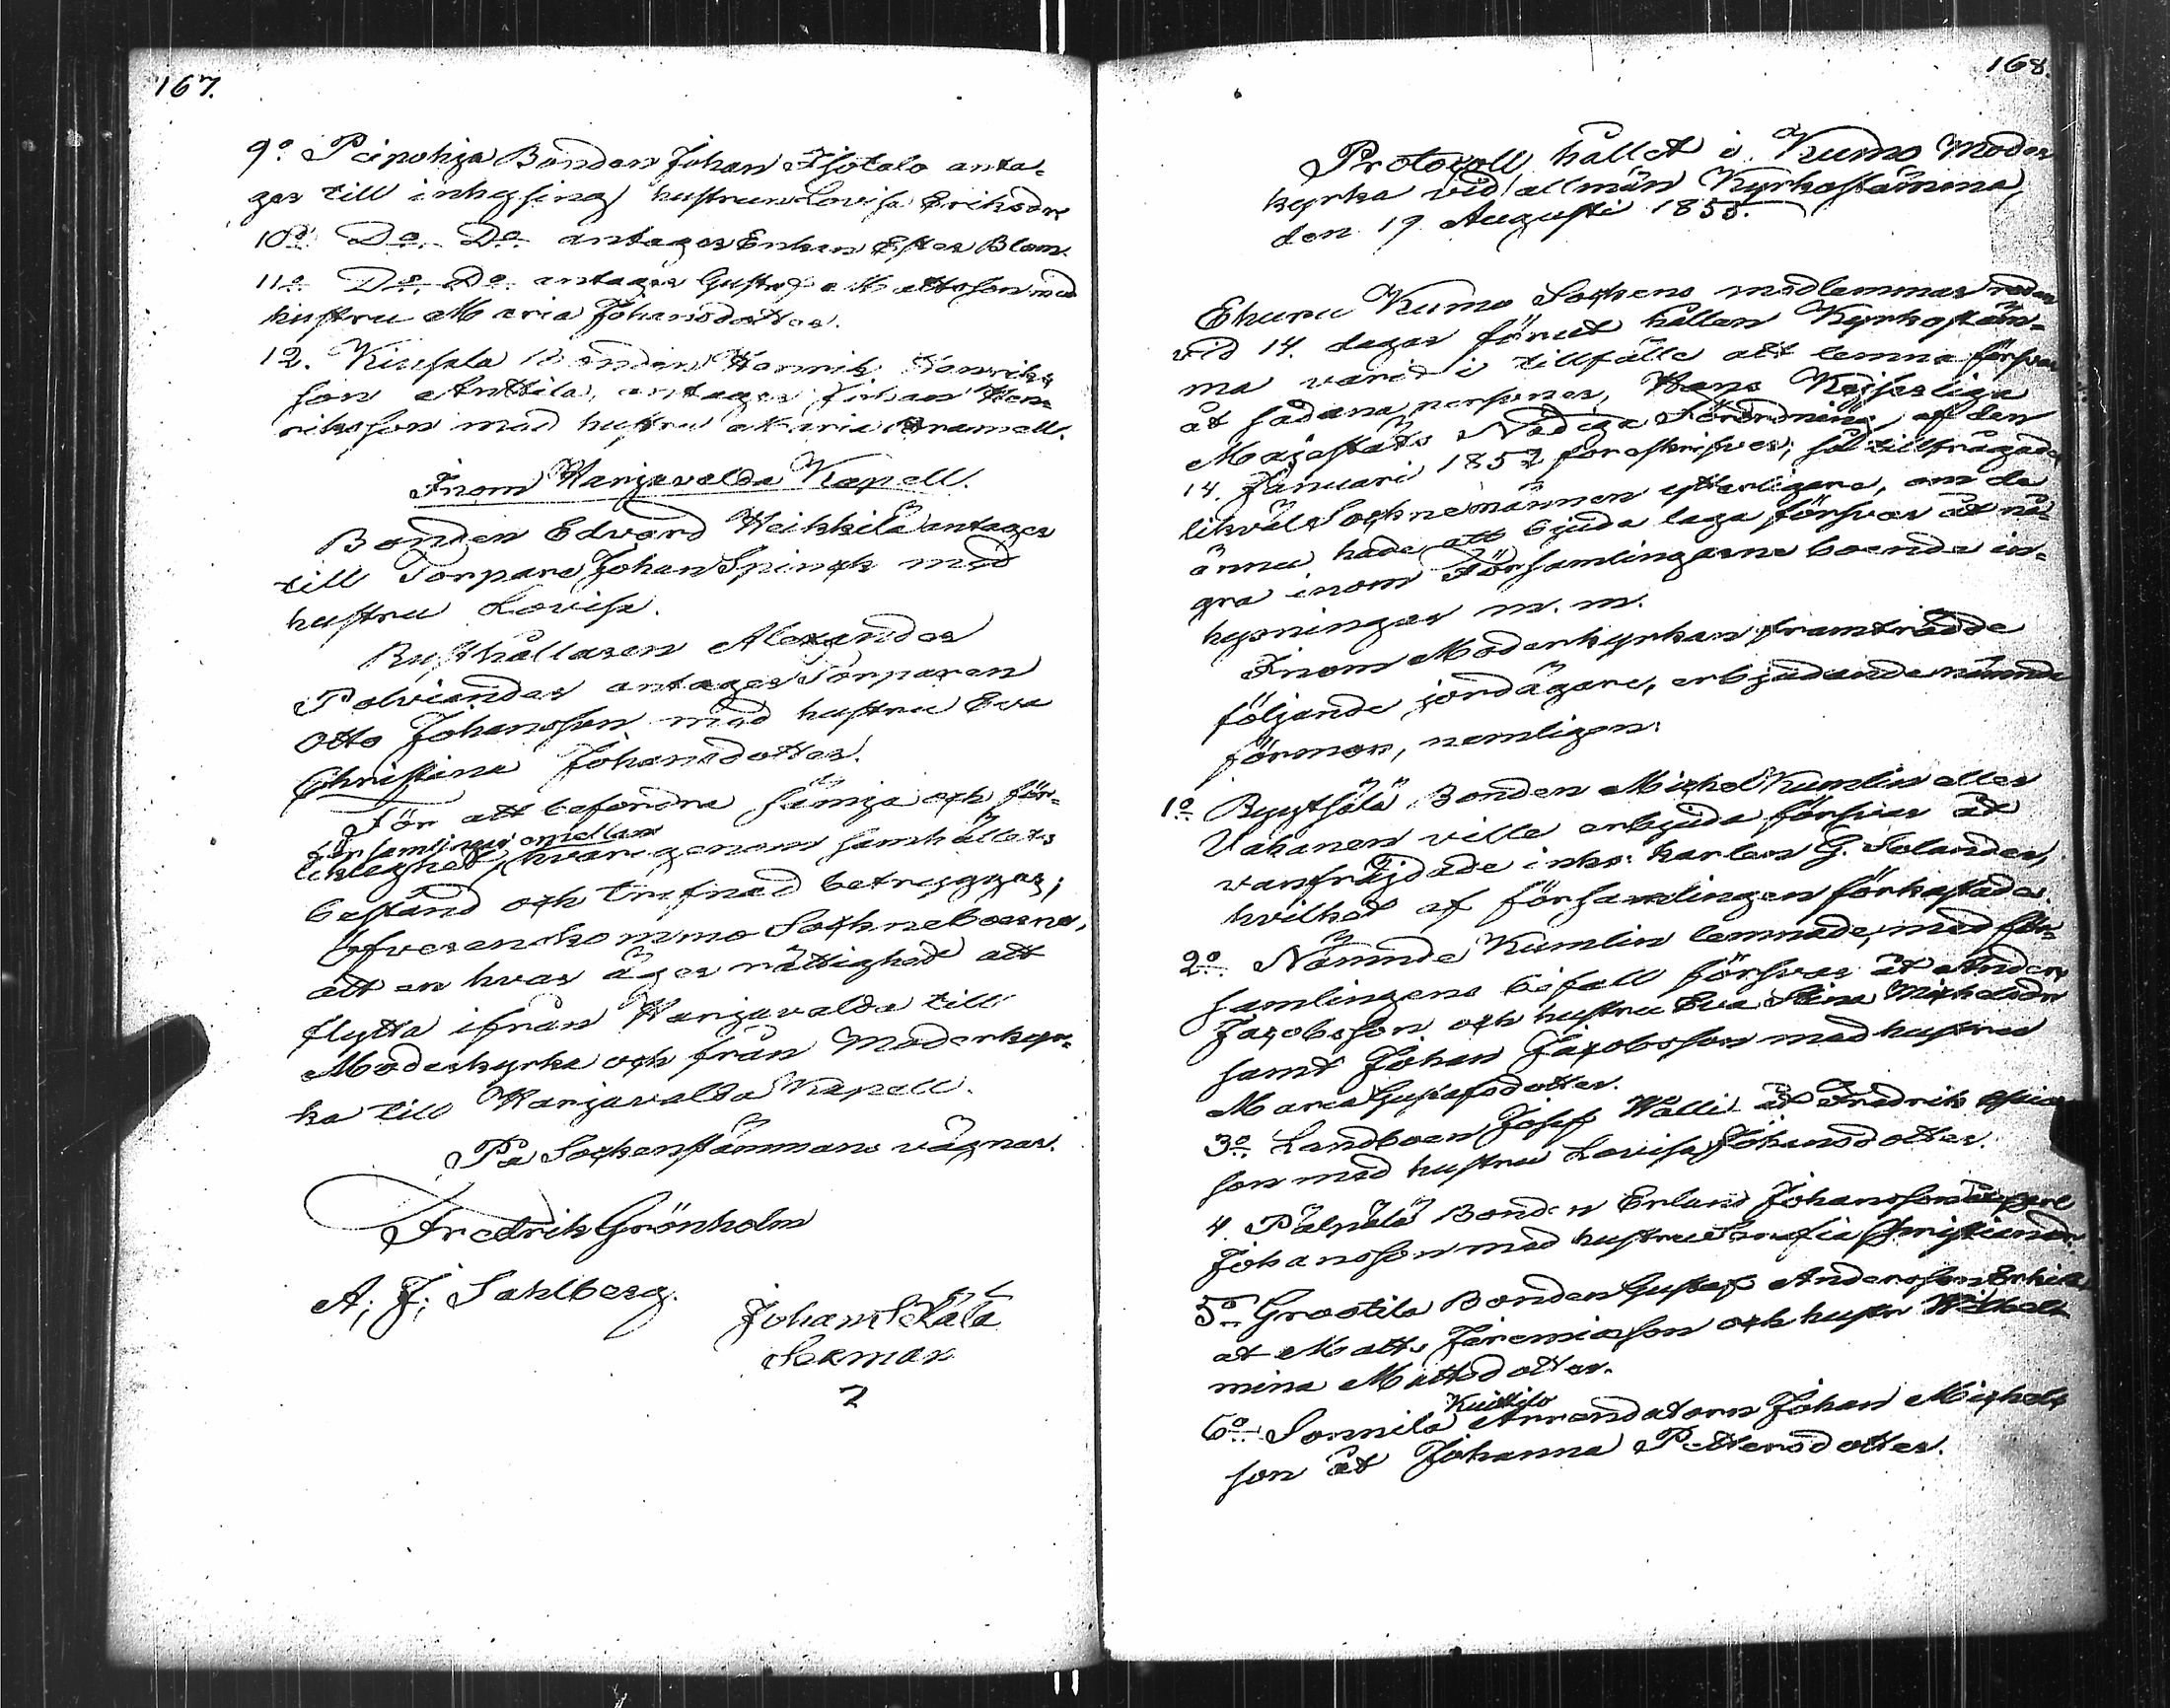 167.
9o. Peipohja Bonden Johan Isotalo anta-
ger till inhysing hustrun Lovisa Eriksdr
10o. Do. Do. antager Enkan Ester Blom.
11o. Do. Do. antager Gustaf Mattsson med
hustru Maria Johansdotter.
12. Kiusala Bonden Henrik Henriks
son Anttila, antager Johan Hen-
riksson med hustru Maria Gramell.
Inom Harjavalda Kapell.
Bonden Edvard Heikkilä antager
till Torpare Johan Spinck med
hustru Lovisa.
Rusthållaren Alexander
Polviander antager Torparen
Otto Johansson med hustru Eva
Christina Johansdotter.
För att befordra sämja och för-
församlingar emellan
likelighet, hvarigenom samhällets
bestånd och trefnad betryggas;
öfverenskommo Sockneboerne,
att en hvar äger rättighet att
flytta ifrån Harjavalda till
Moderkyrka och från Moderkyr-
ka till Harjavalda Kapell.
På Sockenstämmans vägnar.
Fredrik Grönholm
A. F. Sahlberg.
Johan Skälä
Sexman
168.
Protocoll hållet i Kumo Moder
kyrka vid allmän Kyrkostämma,
den 19 Augusti 1855.
Ehuru Kumo Sockens medlemmar redan
vid 14. dagar förut hållen Kyrkostäm-
ma varit i tillfälle att lemna försvar
åt sådana personer, Hans Kejserliga
Majestäts Nådiga Förordning af den
14. Januari 1852 föreskrifver; så tillfrågades
likväl Socknemännen ytterligare, om de
ännu hade att bjuda laga försvar åt nå-
gra inom Församlingarne boende in-
hysningar m. m.
Inom Moderkyrkan framträdde
följande jordägare, erbjudande nämnde
förmon, nemligen:
1o. Byytsälä Bonden Michel Kumlin eller
Vähänen ville erbjuda försvar åt
vanfräjdade inhs: karlen G. Solander,
hvilket af församlingen förkastades.
2o. Nämnde Kumlin lemnade, med för-
samlingens bifall försvar åt Anders
Jacobsson och hustru Eva Stina Michelsdr
samt Johan Jacobsson med hustru
Maria Gustafsdotter.
3o. Landboen Josef Wälli åt Fredrik
son med hustru Lovisa Johansdotter.
4. Pälpälä Bonden Erland Johansson åt Carl
Johansson med hustru Serafia Christiansdr.
5o. Grootila Bonden Gustaf Andersson Erkilä
åt Matts Jeremiasson och hustr Wilhel-
mina Mattsdotter.
Kuittilo
6o. Sonnila Arrendatorn Johan Michels
son åt Johanna Pettersdotter.